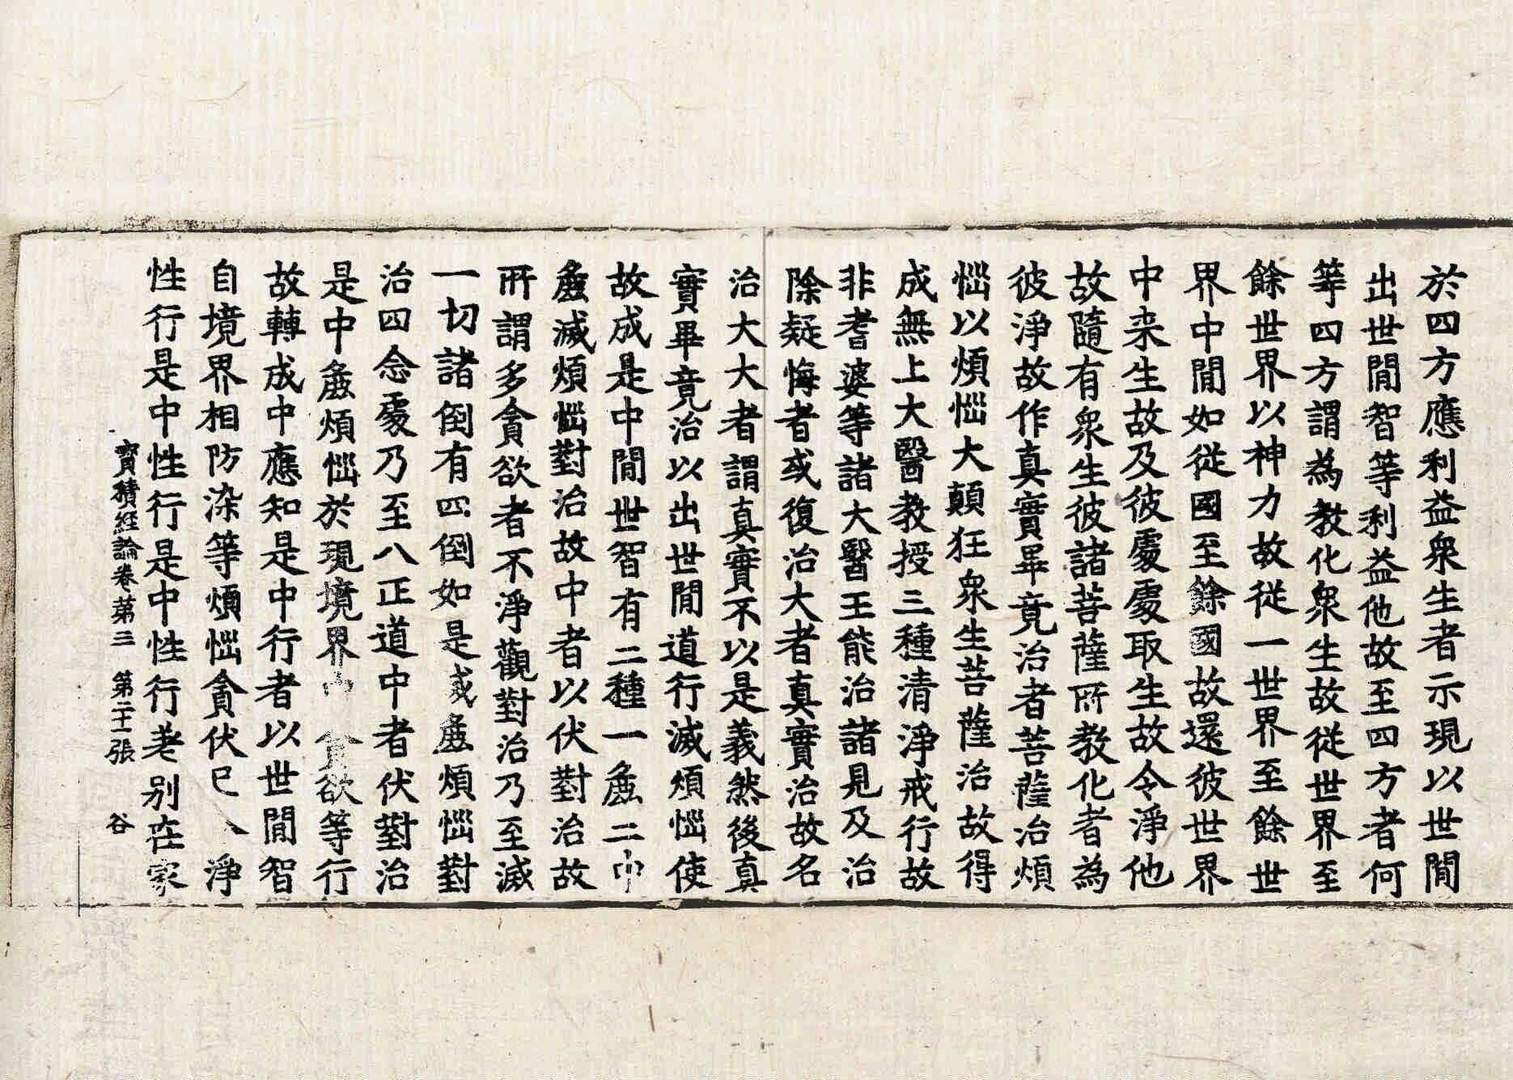 於四方應利益衆生者示現以世間
出世間智等利益他故至四方者何
等四方謂為教化衆生故從世界至
餘世界以神力故從一世界至餘世
界中間如從國至餘國故還彼世界
中来生故及彼處處取生故令淨他
故隨有衆生彼諸菩薩所教化者為
彼淨故作真實畢竟治者菩薩治煩
惱以煩惱大顛狂衆生菩薩治故得
成無上大醫教授三種清淨戒行故
非耆婆等諸大醫王能治諸見及治
除疑悔者或復治大者真實治故名
治大大者謂真實不以是義然後真
實畢竟治以出世間道行滅煩惱使
故成是中間世智有二種一麁二中
麁滅煩惱對治故中者以伏對治故
所謂多貪欲者不淨觀對治乃至滅
一切諸倒有四倒如是或麁煩惱對
治四念處乃至八正道中者伏對治
是中麁煩惱於現境界中貪欲等行
故轉成中應知是中行者以世間智
自境界相防染等煩惱貪伏已 淨
性行是中性行是中性行差别在家
寳積經論卷第三 第二十一張 谷